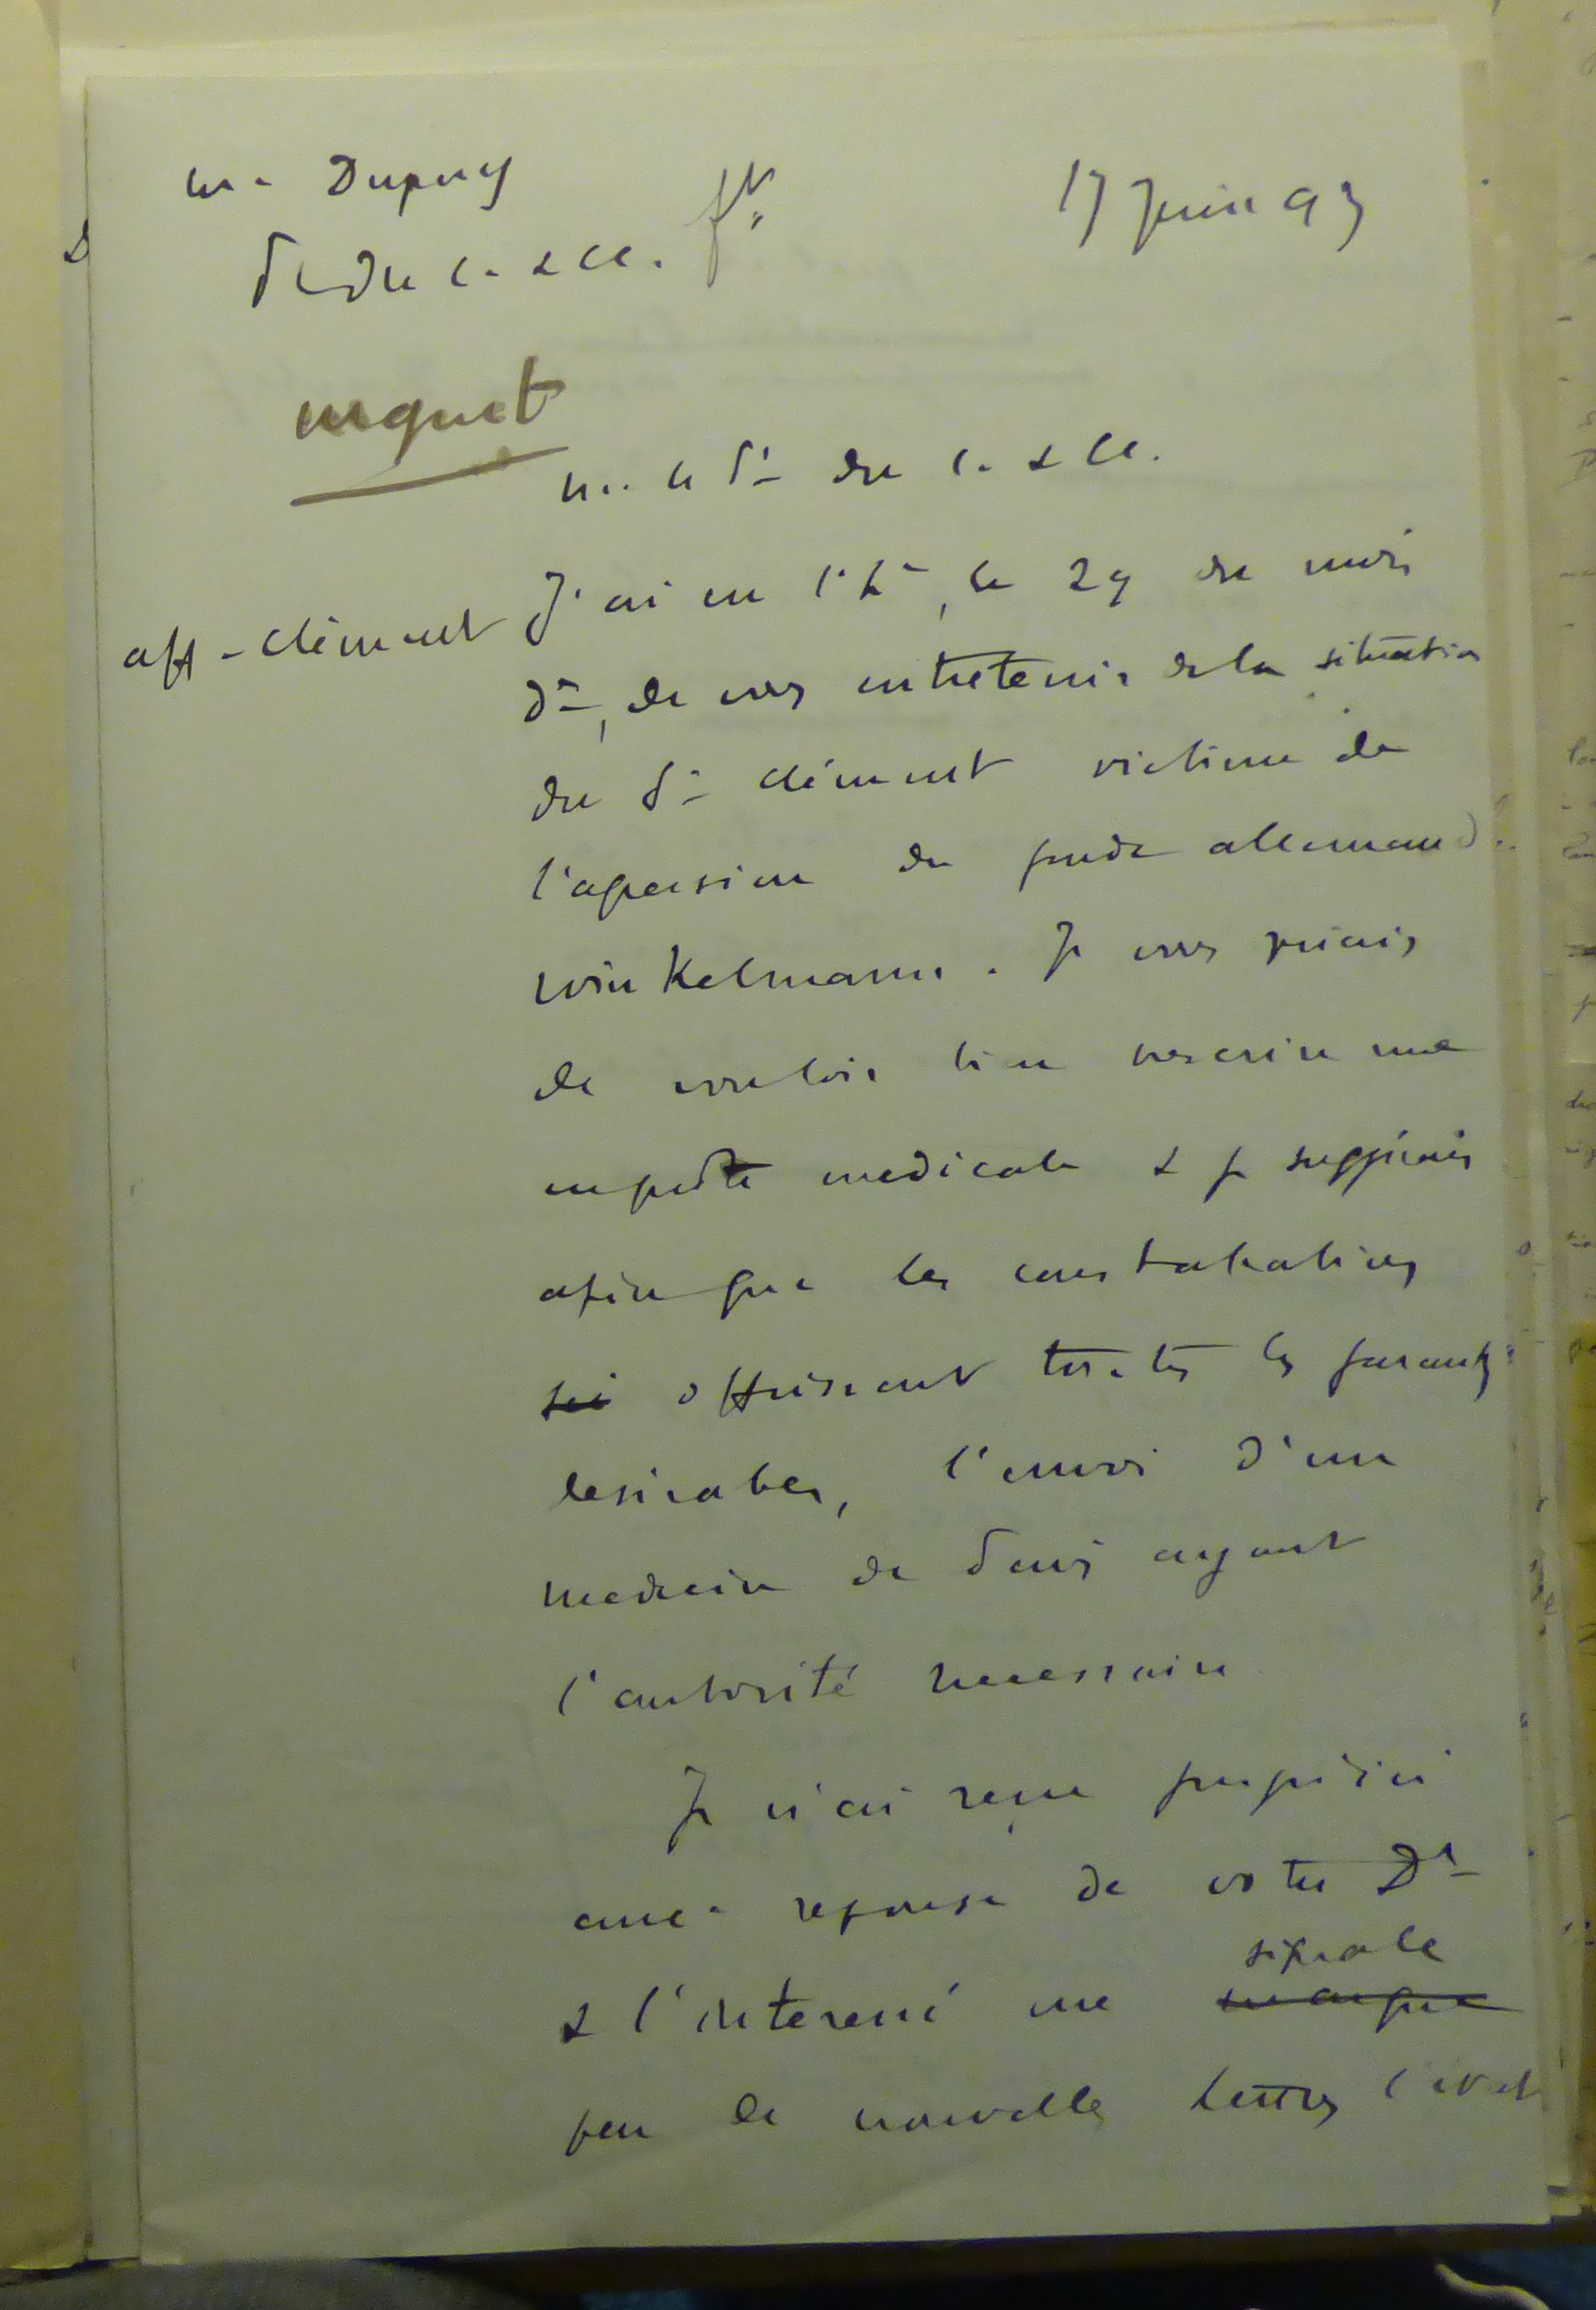 M. Dupuy
17 Juin 93
Pt du C. & CE.
urgent
M. le Pt du C. & CE.
aff. Clément
J'ai eu l'h^r, le 29 du mois
d^r, de vous entretenir de la situation
du S^r Clément victime de
l'agression du garde allemand
Winkelmann. Je vous priais
de vouloir bien prescrire une
enquête medicale & je suggérais
afin que les constatations
offrissent toutes les garanties
desirables, l'envoi d'un
medecin de Paris ayant
l'autorité necessaire
Je n'ai reçu jusqu'ici
aucu. reponse de votre D^t
& l'interessé me signale
par de nouvelles lettres l'etat